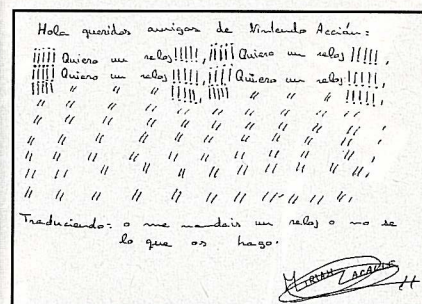 Hola queridos amigos de Nintendo Acción:
¡¡¡¡¡ Quiero un reloj!!!!!, ¡¡¡¡¡ Quiero un reloj !!!!!,
¡¡¡¡¡ Quiero un reloj!!!!!, ¡¡¡¡¡ Quiero un reloj!!!!!,
¡¡¡¡¡ " " " !!!!!, ¡¡¡¡¡ " " " !!!!!,
" " " " " " " " " " ,
" " " " " " " " " " ,
" " " " " " " " " " ,
" " " " " " " " " " ,
" " " " " " " " " " ,
" " " " " " " " " " ,
Traduciendo: o me mandais un reloj o no se
lo que os hago.
MIRIAM